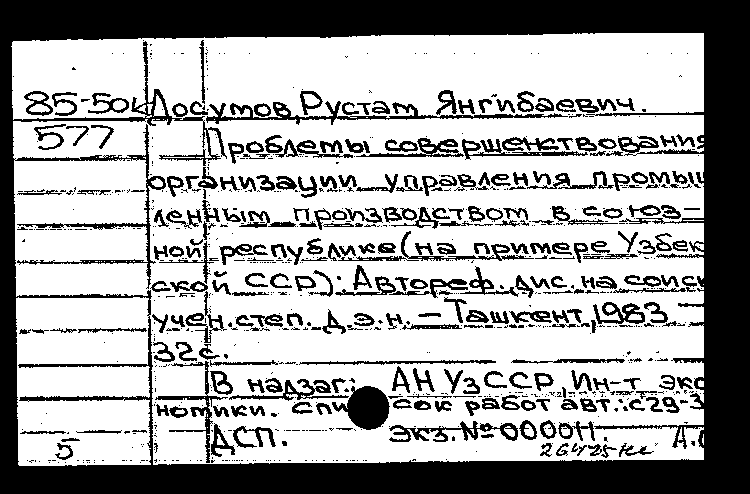 85-50к Досумов, Рустам Янгибаевич.
577 Проблемы совершенствования
организации управления промыш
ленным производством в союз-
ной республике (на примере Узбек
ской ССР): Автореф. дис. на соиск
учен. степ. д.э.н. – Ташкент, 1983 –
32с.
В надзаг.: АН УзССР, Ин-т эко
номики. Список работ авт.: с29-3
ДСП. Экз. №000011.
5